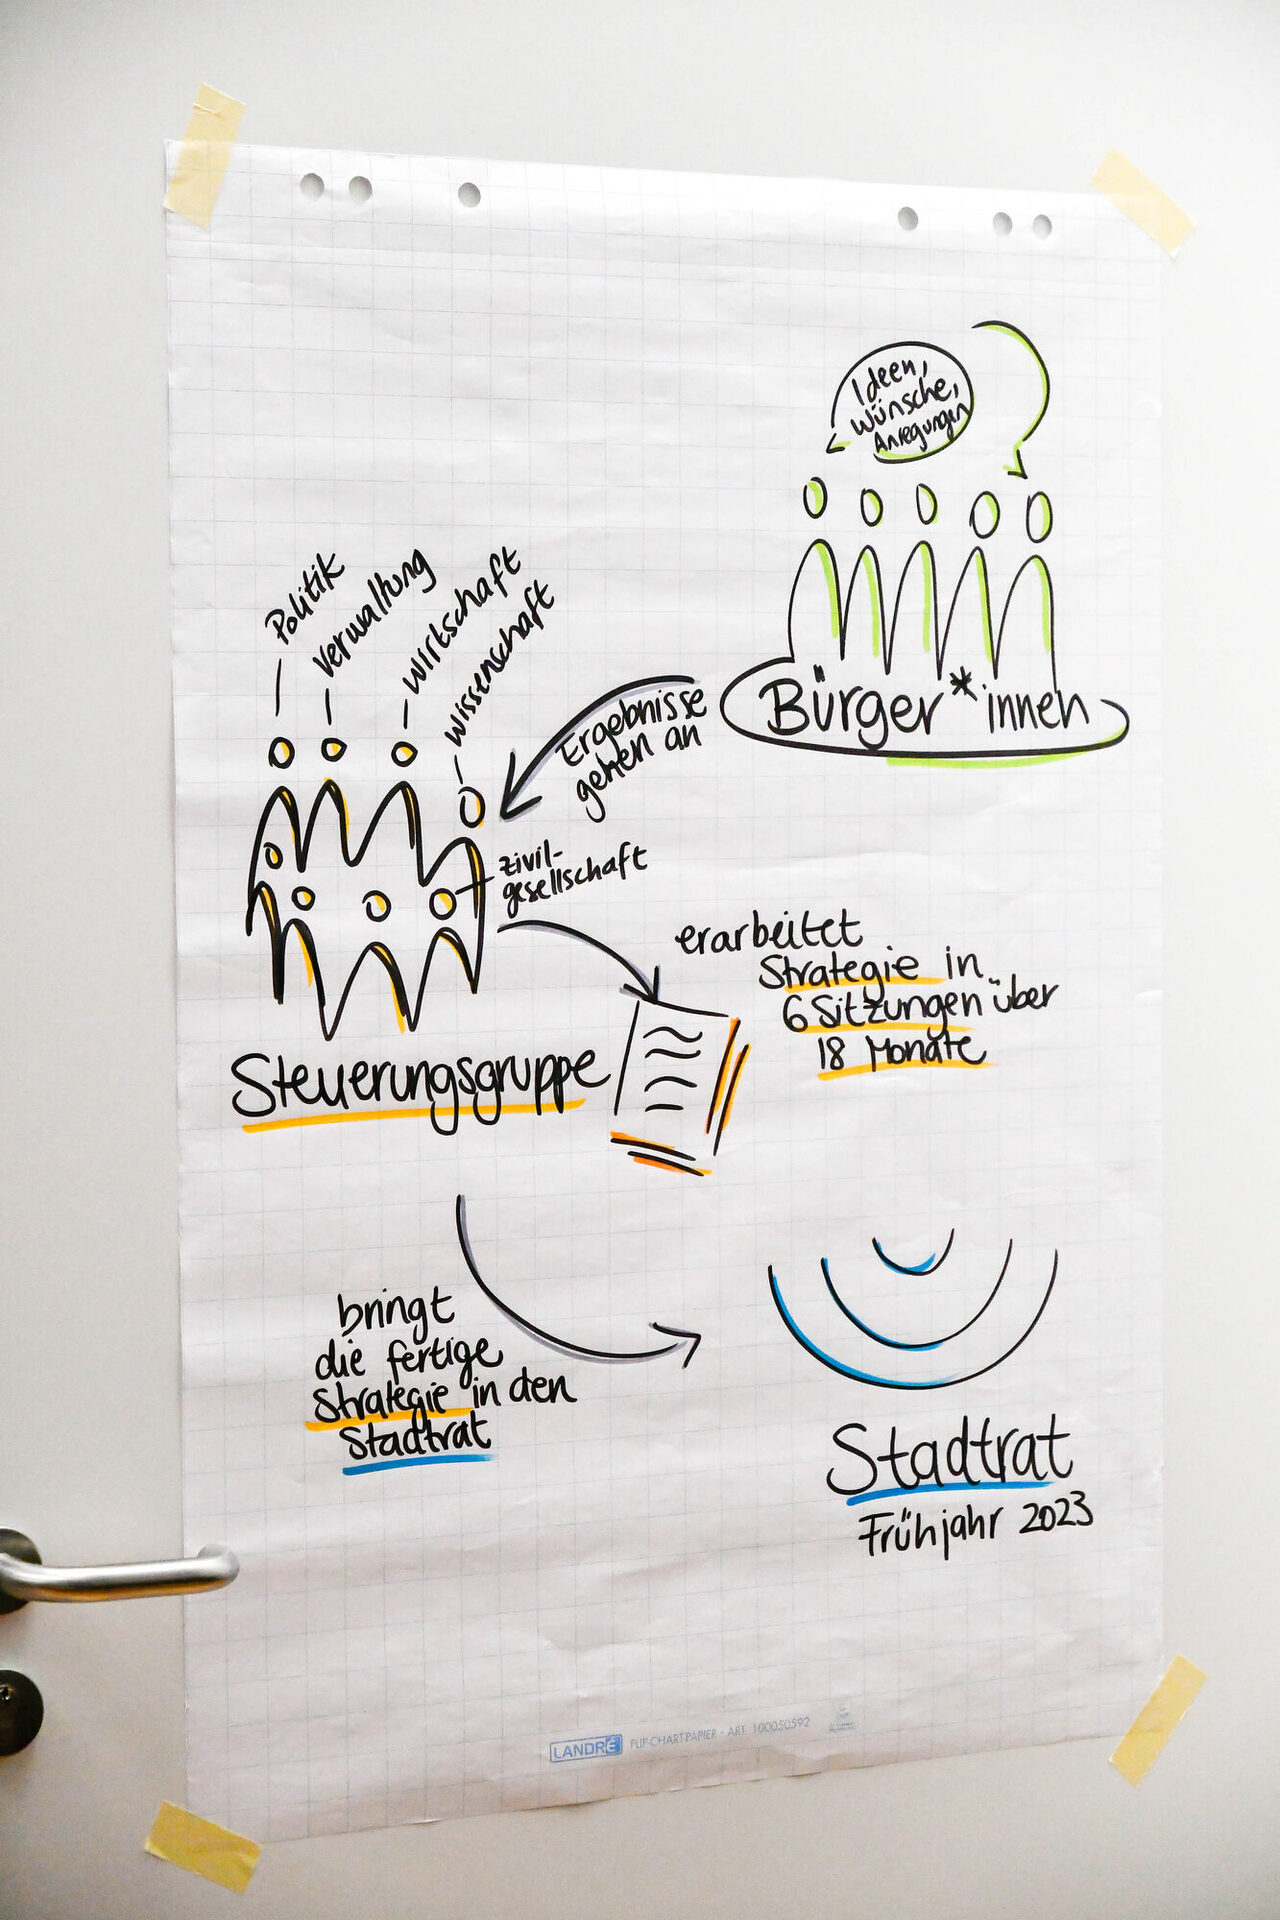 Ideen,
Wünsche,
Anregungen
Bürger*innen
Politik
Verwaltung
Wirtschaft
Wissenschaft
Ergebnisse
gehen an
Zivil-
gesellschaft
Steuerungsgruppe
erarbeitet
Strategie in
6 Sitzungen über
18 Monate
bringt
die fertige
Strategie in den
Stadtrat
Stadtrat
Frühjahr 2023
LANDRÉ FLIP-CHART-PAPIER · ART. 100050592